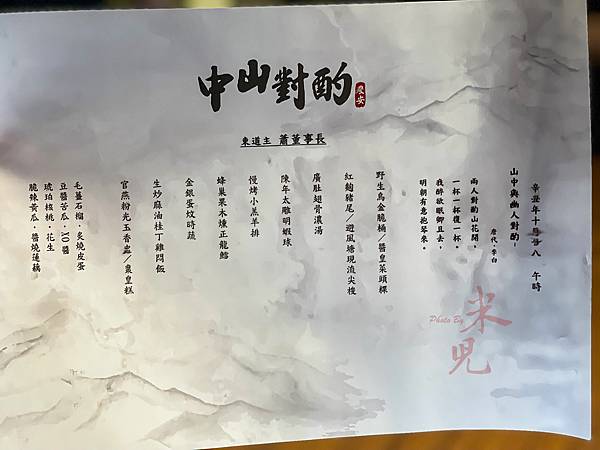 中山對酌
農安
東道主 蕭董事長
辛丑年十月廿八 午時
山中與幽人對酌，
唐代·李白
兩人對酌山花開，
一杯一杯復一杯。
我醉欲眠卿且去，
明朝有意抱琴來。
野生烏金脆桶／醬皇菜頭粿
紅麴豬尾／避風塘現流尖梭
廣肚翅骨濃湯
陳年太雕明蝦球
慢烤小羔羊排
蜂巢果木燻正龍鱈
金銀蛋蚊時蔬
生炒麻油桂丁雞悶飯
官燕粉光玉香盅／棗皇糕
毛薑石榴·炙燒皮蛋
豆醬苦瓜·XO醬
琥珀核桃·花生
脆辣黃瓜·醬燒蓮藕
Photo By
米兒